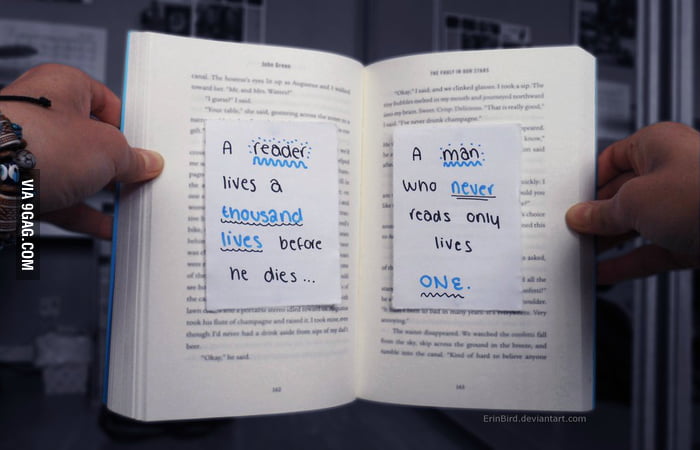 John Green
canal. The hostess's eyes lit up as Augustus and I walked
toward her. "Mr. and Mrs. Waters?"
"I guess?" I said.
"Your table," she said, gesturing across the street to
A reader
lives a
thousand
lives before
he dies...
took his flute of champagne and raised it. I took mine, even
though I'd never had a drink aside from sips of my dad's
beer.
"Okay," he said.
162
THE FAULT IN OUR STARS
"Okay," I said, and we clinked glasses. I took a sip. The
tiny bubbles melted in my mouth and journeyed northward
into my brain. Sweet. Crisp. Delicious. "That is really good,"
I said. "I've never drunk champagne."
A man
who never
reads only
lives
ONE.
annoying."
The waiter disappeared. We watched the confetti fall
from the sky, skip across the ground in the breeze, and
tumble into the canal. "Kind of hard to believe anyone
163
VIA 9GAG.COM
ErinBird.deviantart.com